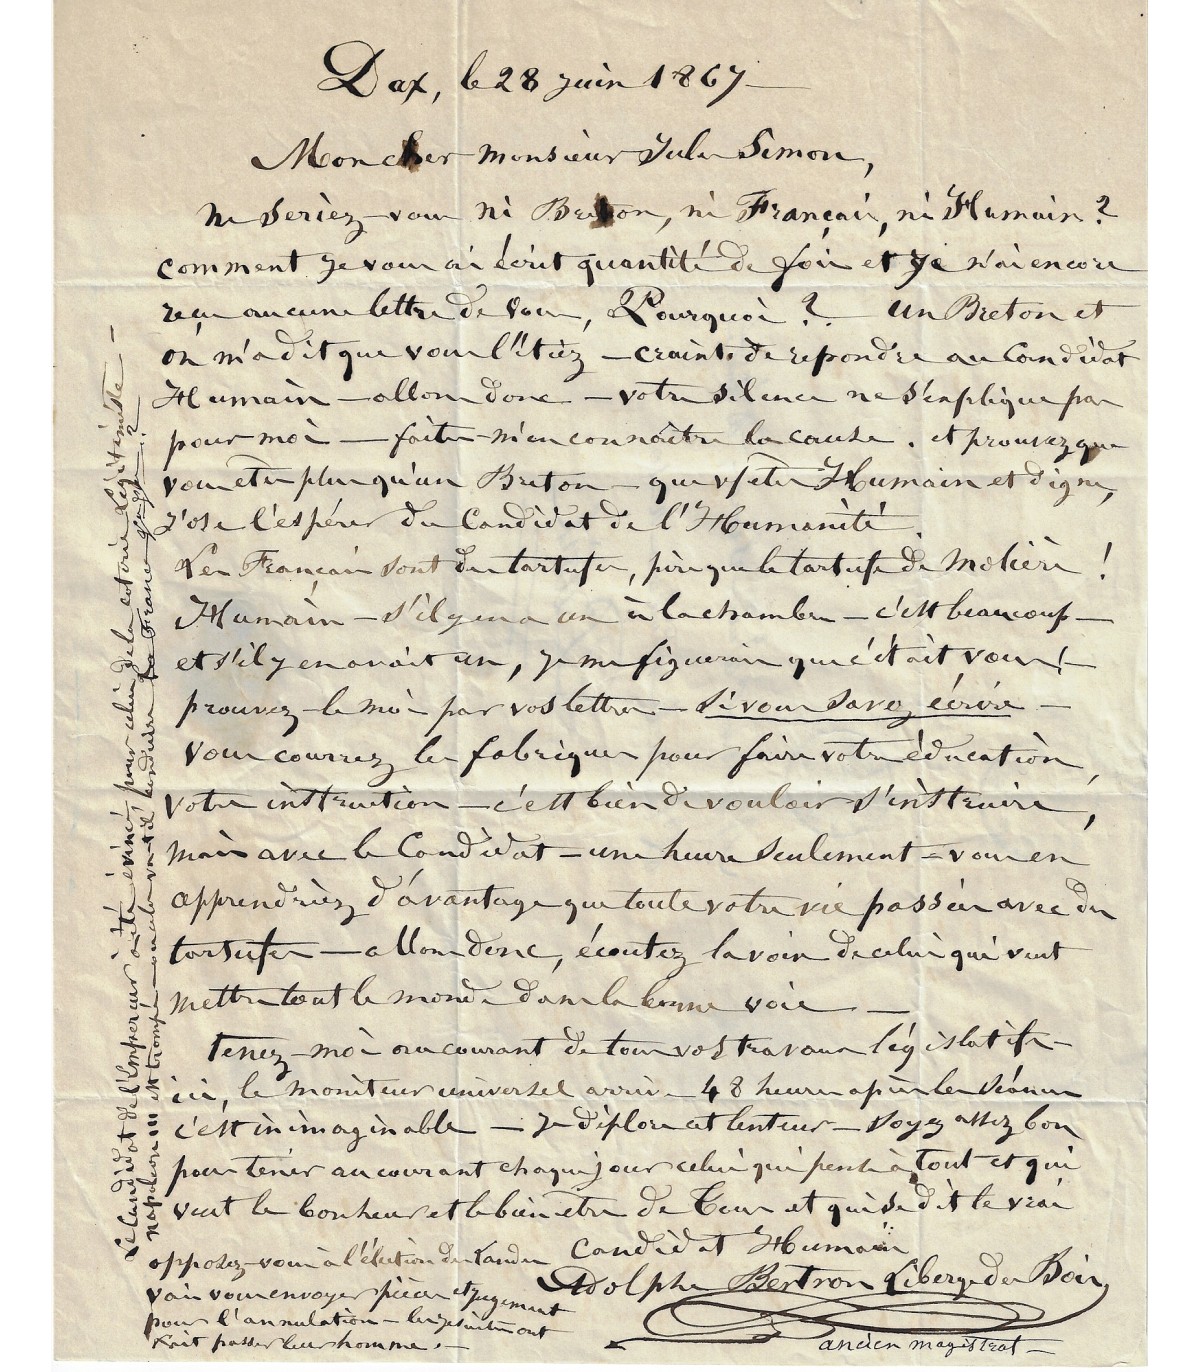 Dax, le 28 juin 1867
Mon cher monsieur Jules Simon,
ne seriez-vous ni Breton, ni Français, ni Humain ?
comment je vous ai écrit quantité de fois et je n'ai encore
reçu aucune lettre de vous, Pourquoi ? un Breton et
on m'a dit que vous l'étiez – craint de repondre au Candidat
Humain – allons donc – votre silence ne s'explique pas
pour moi – faites m'en connaître la cause. et prouvez que
vous etes plus qu'un Breton – que v/ etes Humain et digne,
j'ose l'espérer du Candidat de l'Humanité.
Les Français sont des tartufes, pire que le tartufe de molière !
Humain – s'il y en a un à la chambre – c'est beaucoup –
et s'il y en avait un, je me figurerais que c'était vous ! –
prouvez-le moi par vos lettres – si vous savez écrire –
vous courrez les fabriques pour faire votre éducation,
votre instruction – c'est bien de vouloir s'instruire,
mais avec le Candidat – une heure seulement – vous en
apprendriez d'avantage que toute votre vie passée avec des
tartufes – allons donc, écoutez la voix de celui qui veut
mettre tout le monde dans la bonne voie –
tenez-moi au courant de tous vos travaux législatifs –
ici, le moniteur universel arrive 48 heures après les séances
c'est inimaginable – je déplore cet lenteur – soyez assez bon
pour tenir au courant chaque jour celui qui pense à tout et qui
veut le bonheur et le bien etre de Tous et qui se dit le vrai
Candidat Humain
Adolphe Bertron Liberge du Bois,
ancien magistrat –
opposez-vous à l'élection des Landes
vais vous envoyer pièces et jugement
pour l'annulation – les jesuites ont
fait passer leur homme. –
Le Candidat de l'Empereur a été évincé, pour celui de la coterie Légitimiste –
napoléon III est trompé – où cela va-t-il conduire La France